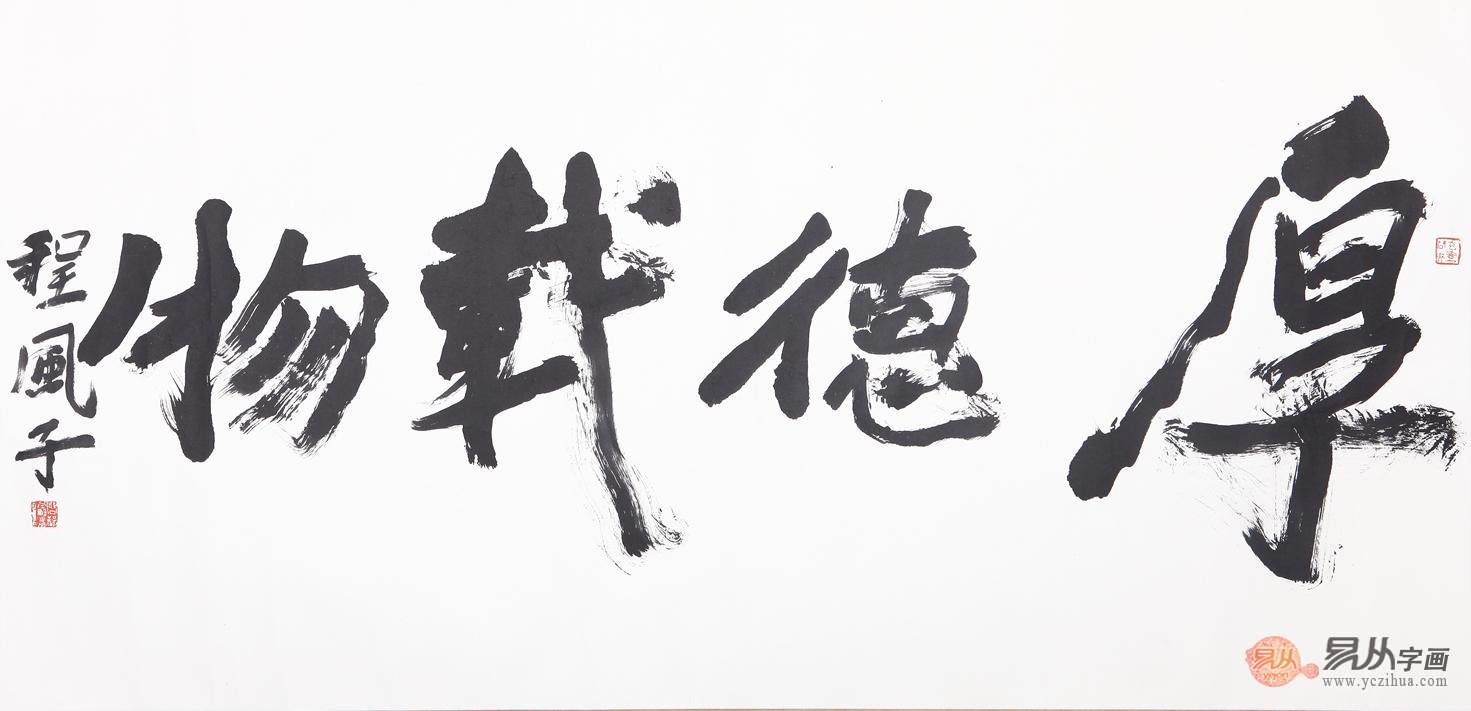 厚德载物
程风子
易从字画
www.yczihua.com